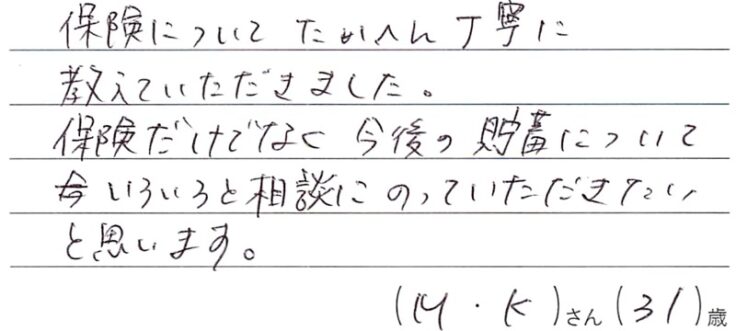 保険について たいへん丁寧に
教えていただきました。
保険だけでなく 今後の 貯蓄について
いろいろと相談にのっていただきたい
と思います。
(M・K)さん(31)歳